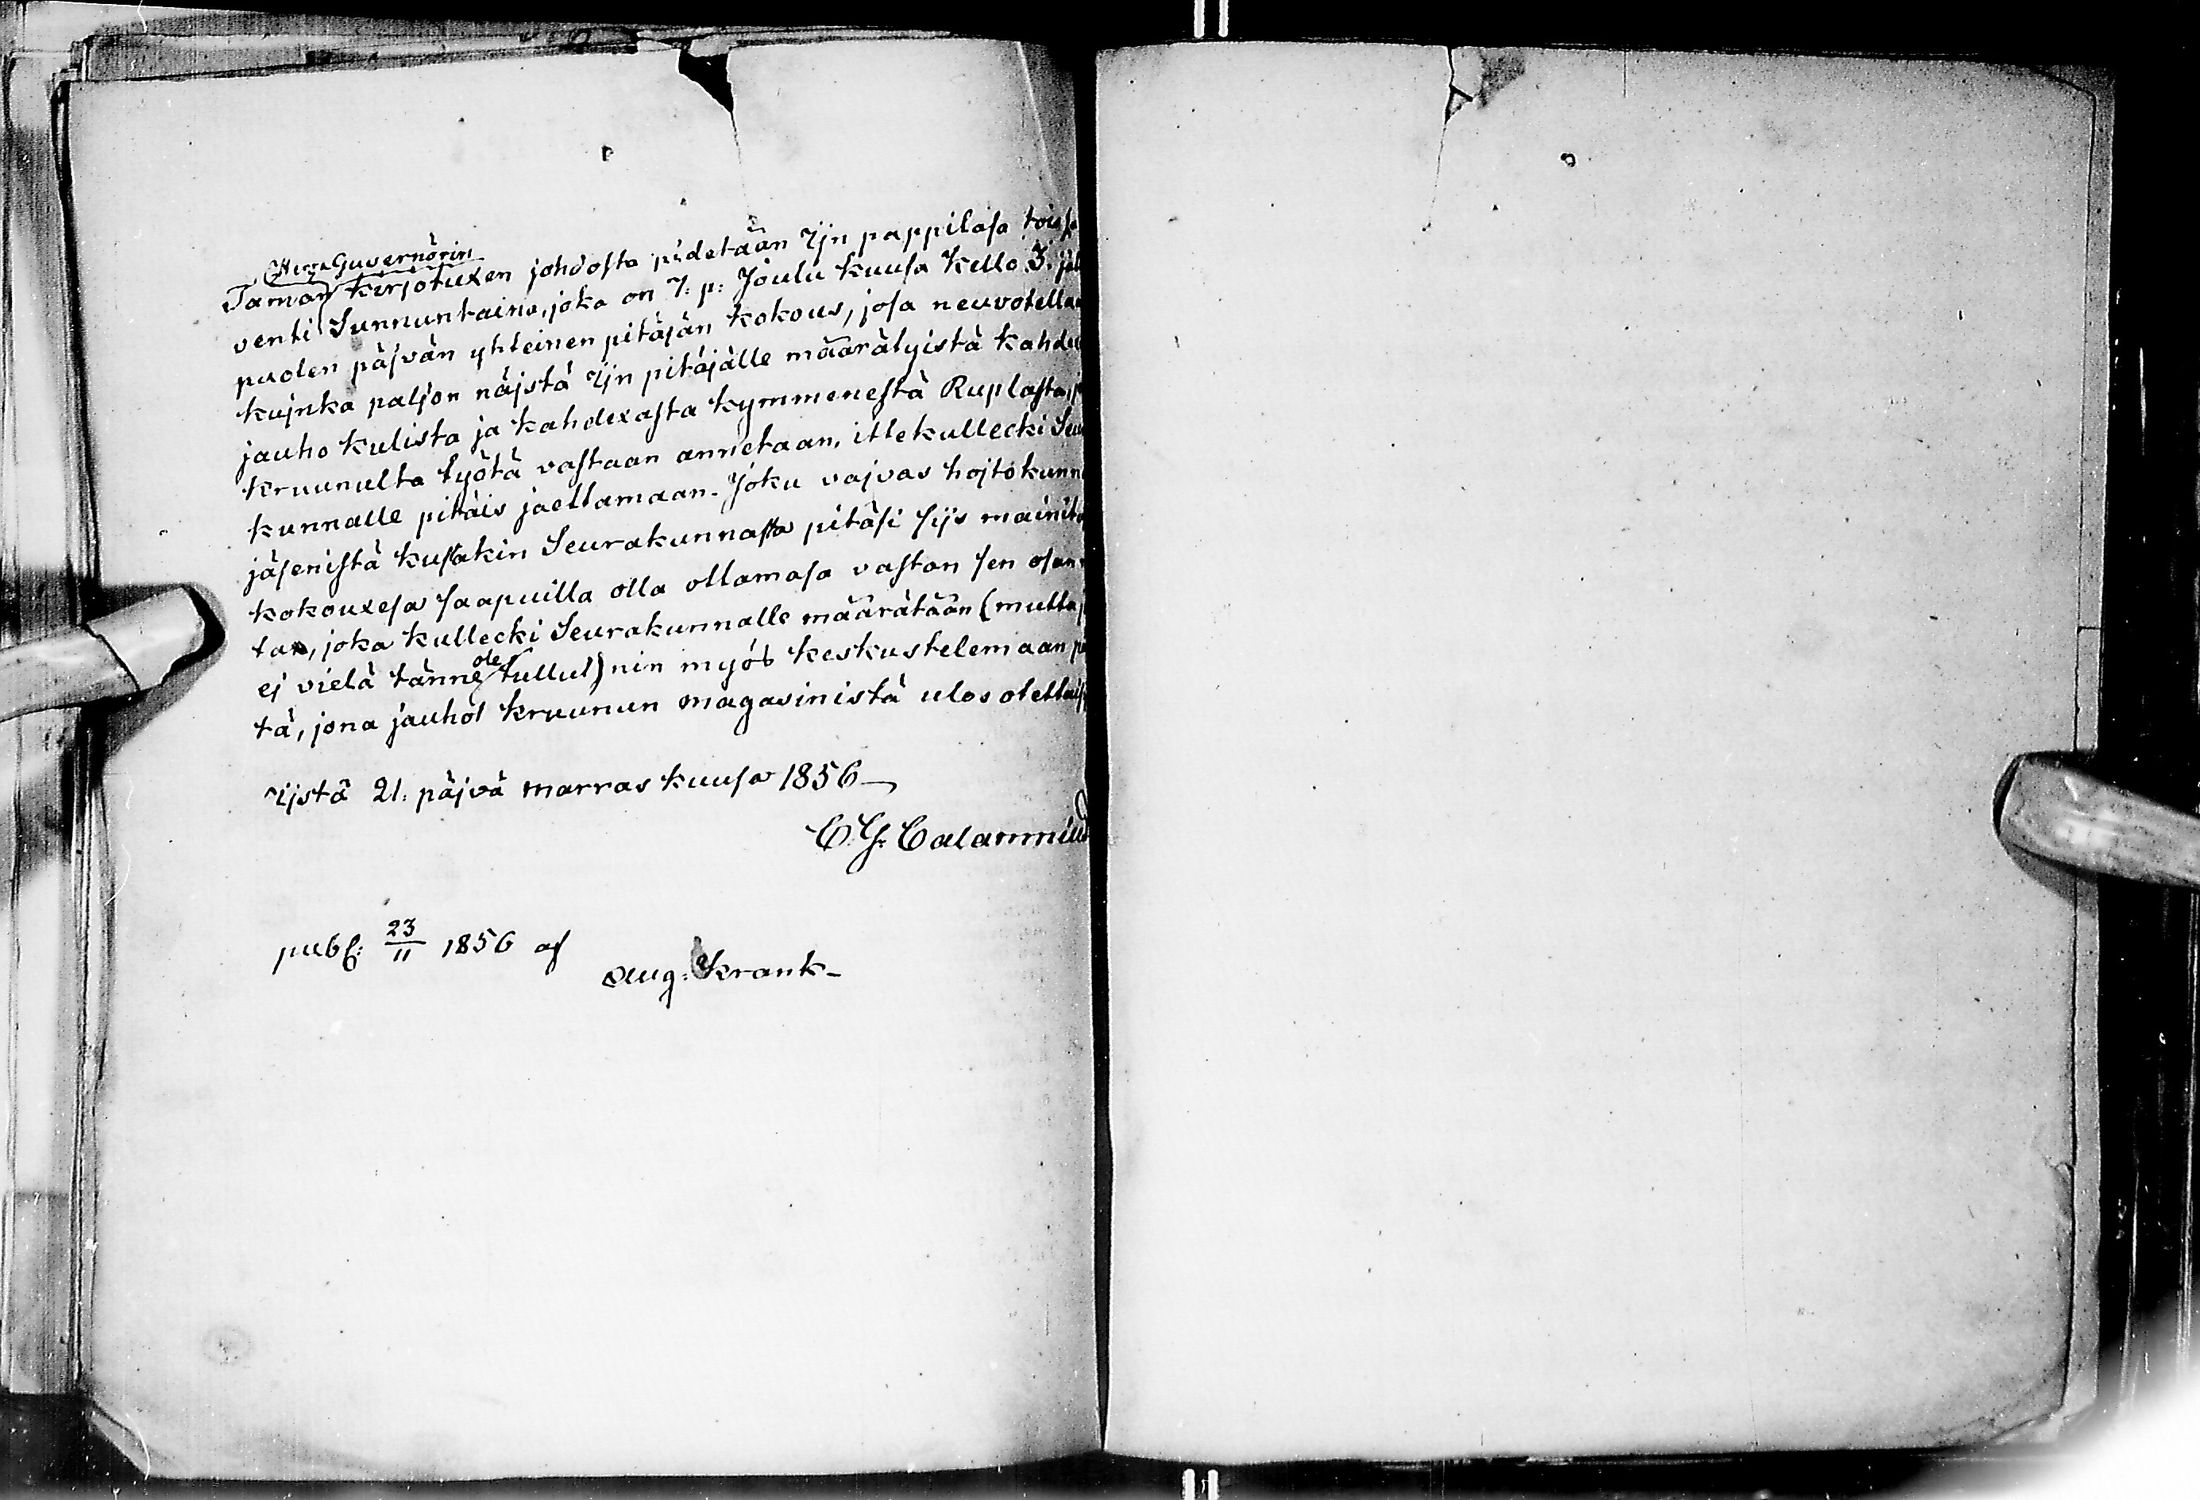 Herra Guvernörin
Tämän kirjotuxen johdosta pidetään Ijn pappilasa
venti Sunnuntaina, joka on 7: p: Joulu kuusa Kello 3.
puolen päjvän yhteinen pitäjän kokous, josa neuvotellaan
kujnka paljon näjstä Ijn pitäjälle määrätyistä
jauho kulista ja kahdexasta kymmenestä Ruplasta,
kruunulta työtä vastaan annetaan, itsekullecki
kunnalle pitäis jaettamaan. Joku vajvas hojtokunn
jäsenistä kussakin Seurakunnassa pitäsi sijs
kokouxesa saapuilla olla ottamasa vastan sen
ta, joka kullecki Seurakunnalle määrätään (mutta
ej vielä tänne ole tullut) nin myös keskustelemaan
tä, jona jauhot kruunun magasinistä ulos
Ijstä 21. päjvä marras kuusa 1856
C. G. Calamnius
publ: 23/11 1856 af
Aug: Krank